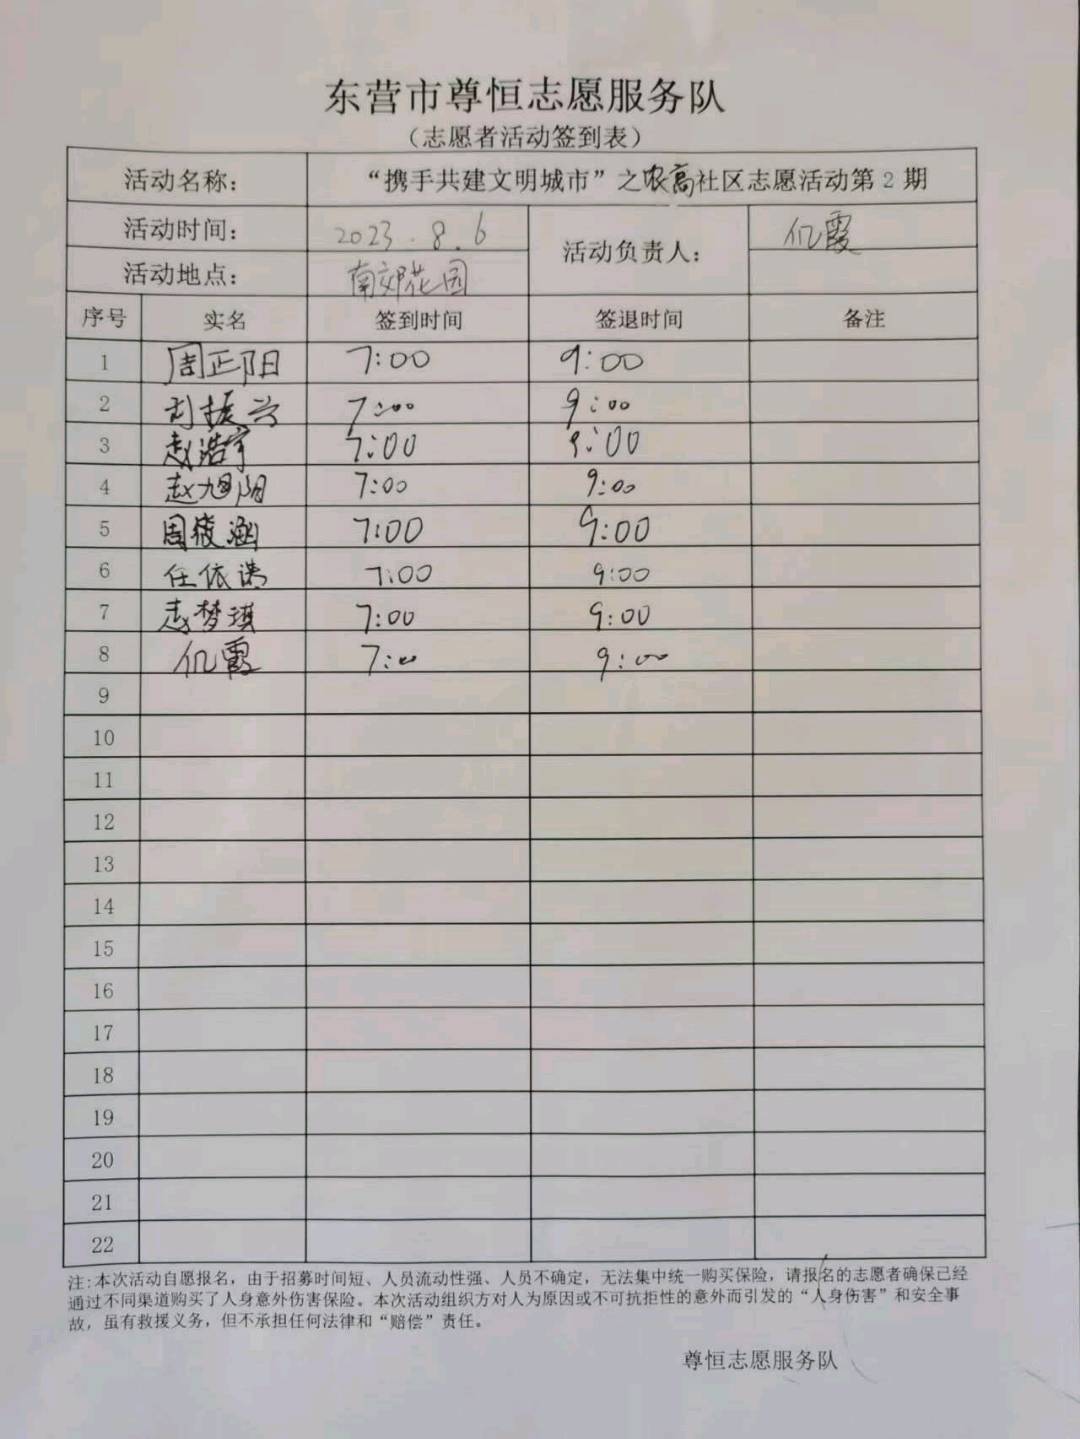 东营市尊恒志愿服务队
（志愿者活动签到表）
活动名称： “携手共建文明城市”之农高社区志愿活动第2期
活动时间： 2023.8.6 活动负责人： 仉霞
活动地点： 南郊花园
序号 实名 签到时间 签退时间 备注
1 周正阳 7:00 9:00
2 刘振兴 7:00 9:00
3 赵浩宇 7:00 9:00
4 赵旭阳 7:00 9:00
5 周筱涵 7:00 9:00
6 任依 7:00 9:00
7 赵梦琪 7:00 9:00
8 仉霞 7:00 9:00
9
10
11
12
13
14
15
16
17
18
19
20
21
22
注：本次活动自愿报名，由于招募时间短、人员流动性强、人员不确定，无法集中统一购买保险，请报名的志愿者确保已经
通过不同渠道购买了人身意外伤害保险。本次活动组织方对人为原因或不可抗拒性的意外而引发的“人身伤害”和安全事
故，虽有救援义务，但不承担任何法律和“赔偿”责任。
尊恒志愿服务队